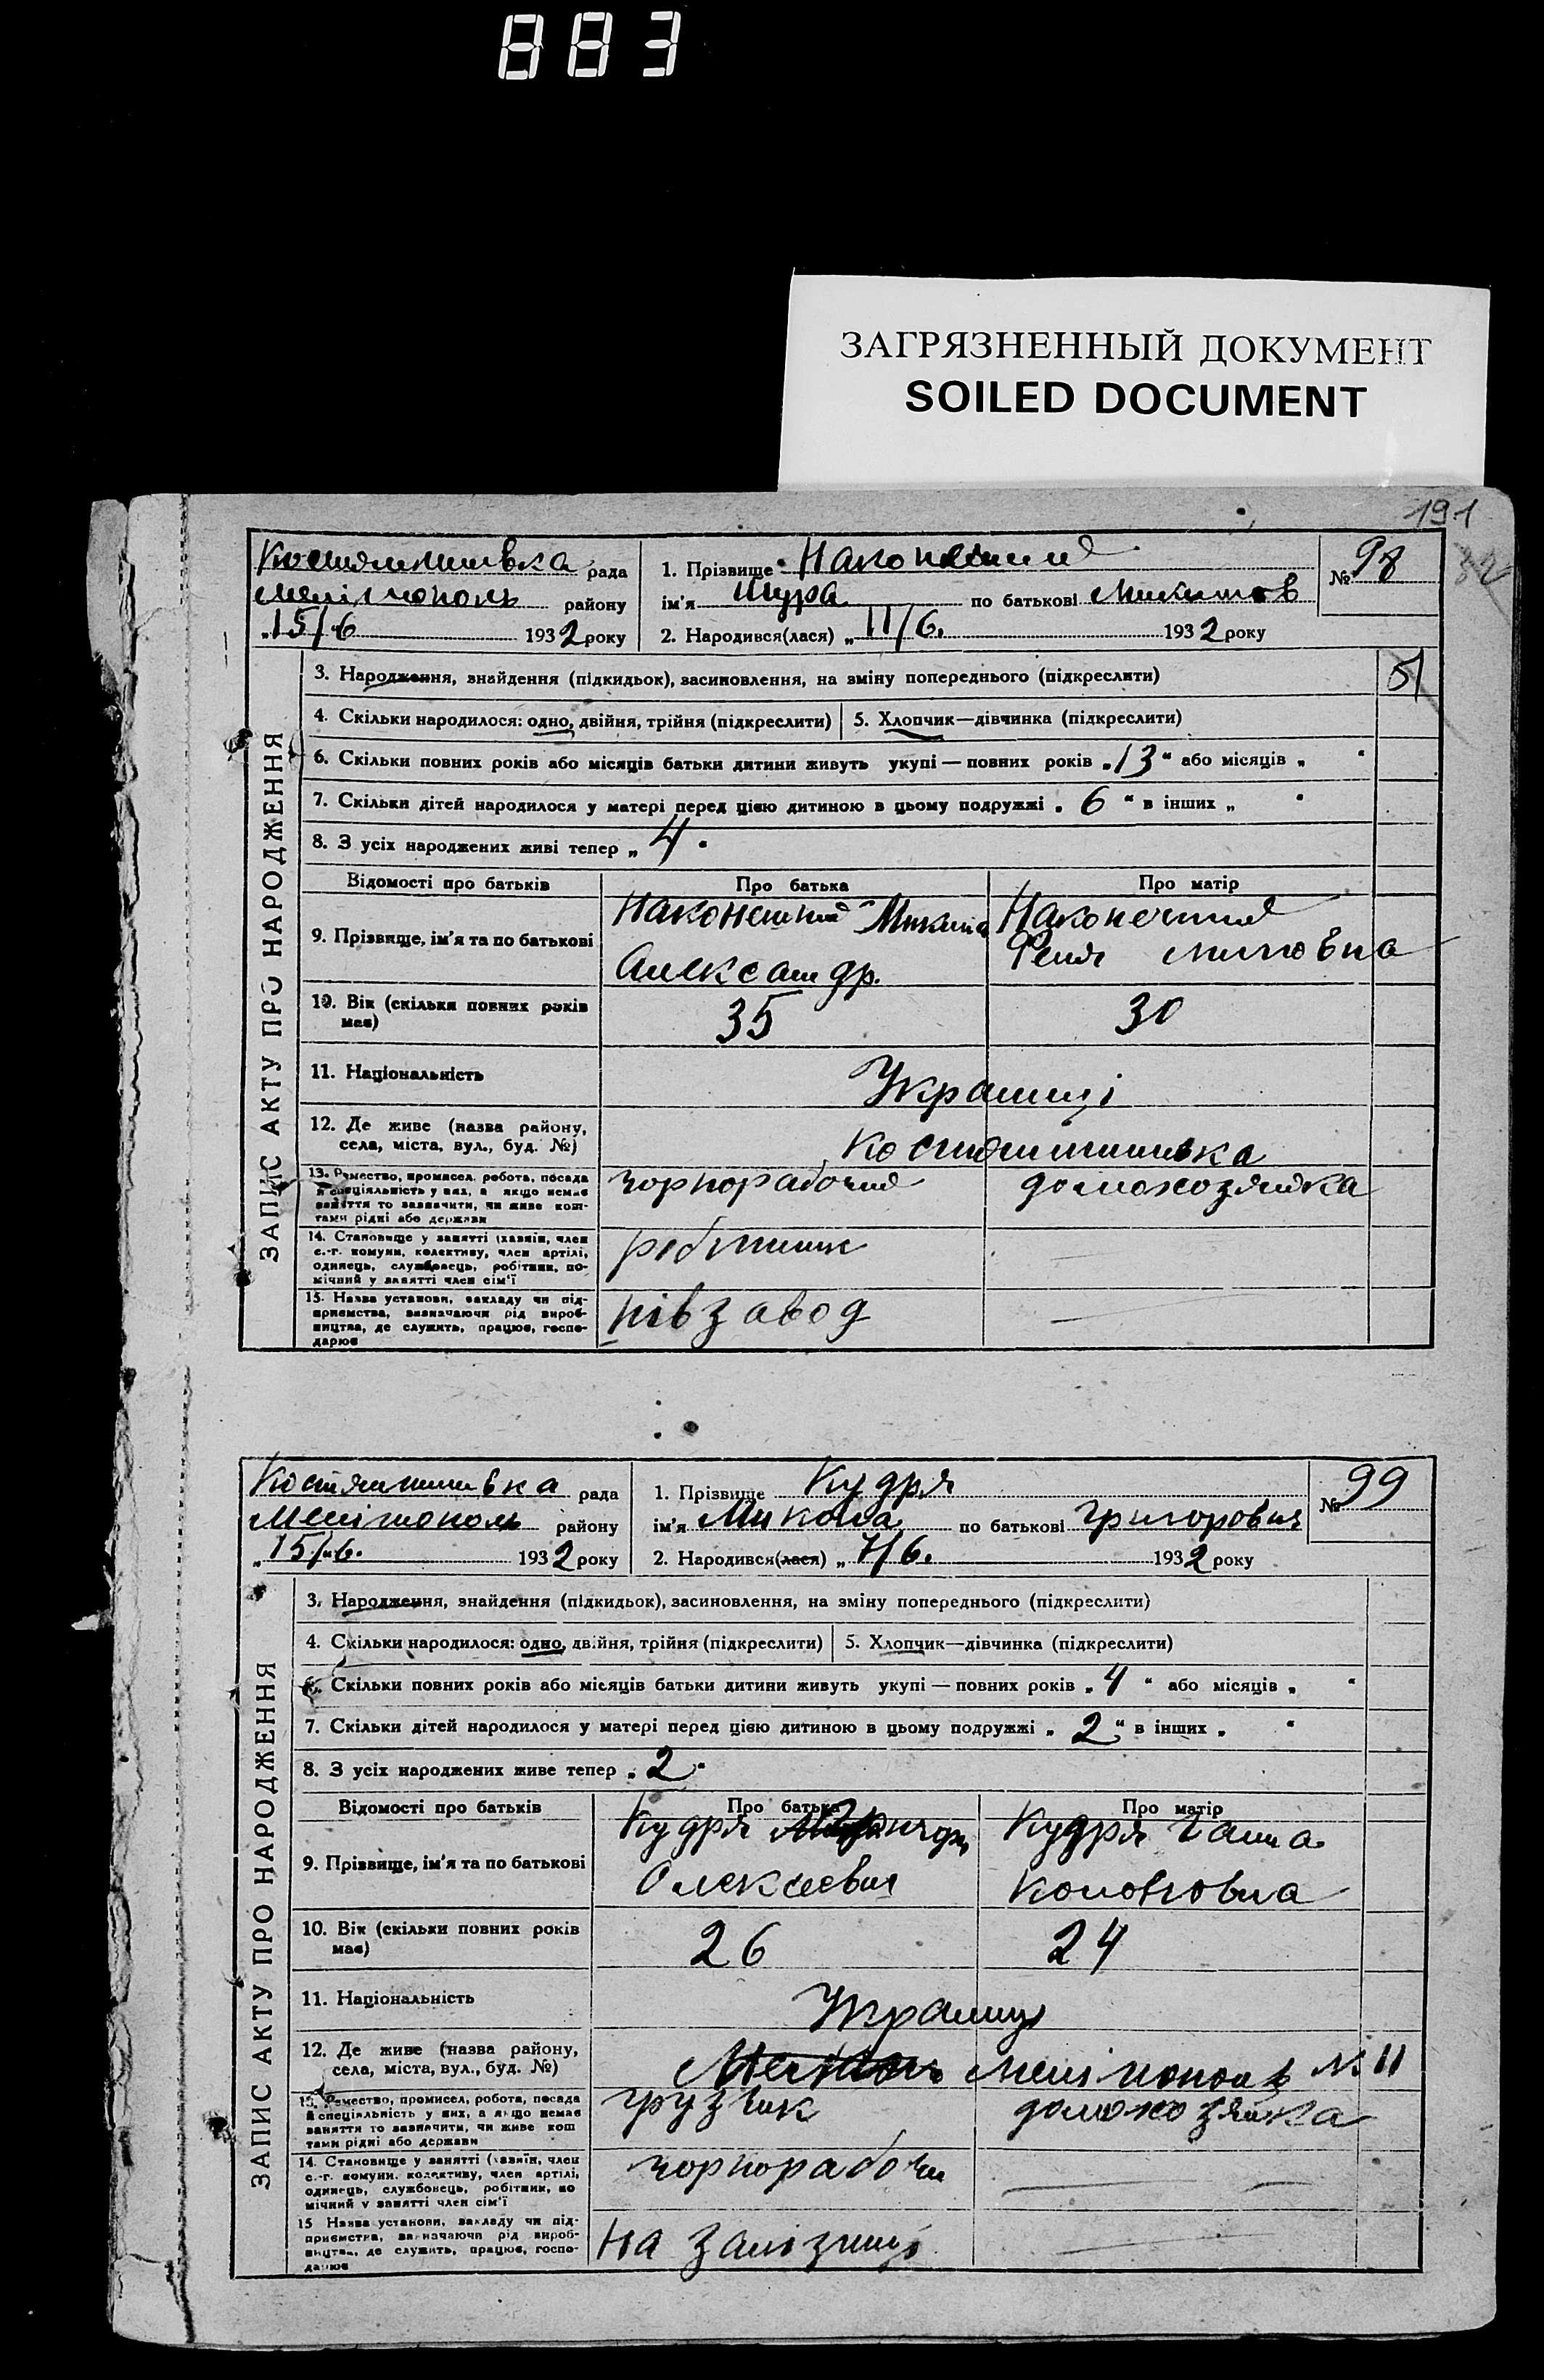 883
ЗАГРЯЗНЕННЫЙ ДОКУМЕНТ
SOILED DOCUMENT
191
рада
району
„15/6 1932 року
1. Прізвище
ім'я Шура по батькові
2. Народився(лася) „11/6. 1932 року
№ 98
ЗАПИС АКТУ ПРО НАРОДЖЕННЯ
3. Народження, знайдення (підкидьок), засиновлення, на зміну попереднього (підкреслити)
5
4. Скільки народилося: одно, двійня, трійня (підкреслити)
5. Хлопчик—дівчинка (підкреслити)
6. Скільки повних років або місяців батьки дитини живуть укупі — повних років „13“ або місяців „ “
7. Скільки дітей народилося у матері перед цією дитиною в цьому подружжі „6“ в інших „ “
8. З усіх народжених живі тепер „4“
Відомості про батьків
Про батька
Про матір
9. Прізвище, ім'я та по батькові
Наконечний
Наконечний
10. Вік (скільки повних років має)
35
30
11. Національність
Українці
12. Де живе (назва району,
села, міста, вул., буд. №)
13. Ремество, промисел, робота, посада
й спеціяльність у них, а якщо немає
заняття то зазначити, чи живе кош-
тами рідні або держави
чорнорабочий
домохозяйка
14. Становище у занятті (хазяїн, член
с.-г. комуни, колективу, член артілі,
одинець, службовець, робітник, по-
мічний у занятті член сім'ї
робітник
15. Назва установи, закладу чи під-
приємства, визначаючи рід вироб-
ництва, де служить, працює, госпо-
дарює
півзавод
рада
Мелітополь району
„15/6. 1932 року
1. Прізвище Кудря
ім'я Микола по батькові Григорович
2. Народився(лася) „7/6. 1932 року
№ 99
ЗАПИС АКТУ ПРО НАРОДЖЕННЯ
3. Народження, знайдення (підкидьок), засиновлення, на зміну попереднього (підкреслити)
4. Скільки народилося: одно, двійня, трійня (підкреслити)
5. Хлопчик—дівчинка (підкреслити)
6. Скільки повних років або місяців батьки дитини живуть укупі — повних років „4“ або місяців „ “
7. Скільки дітей народилося у матері перед цією дитиною в цьому подружжі „2“ в інших „ “
8. З усіх народжених живе тепер „2“
Відомості про батьків
Про батька
Про матір
9. Прізвище, ім'я та по батькові
Кудря
Олексеевич
Кудря Ганна
10. Вік (скільки повних років має)
26
24
11. Національність
Українці
12. Де живе (назва району,
села, міста, вул., буд. №)
Мелітополь № 11
13. Ремество, промисел, робота, посада
й спеціяльність у них, а якщо немає
заняття то зазначити, чи живе кош
тами рідні або держави
грузчик
домохозяйка
14. Становище у занятті (хазяїн, член
с.-г. комуни, колективу, член артілі,
одинець, службовець, робітник, по
мічний у занятті член сім'ї
чорнорабочи
15 Назва установи, закладу чи під-
приємства, визначаючи рід вироб-
ництва, де служить, працює, госпо-
дарює
на залізниці